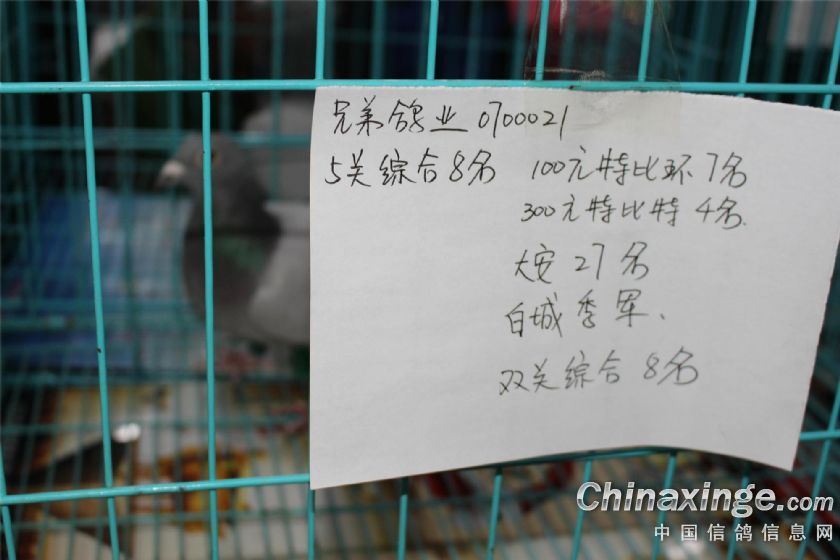 兄弟鸽业 0700021
5关综合8名 100元特比环7名
300元特比特 4名.
大安 27名
白城季军.
双关综合 8名
Chinaxinge.com
中国信鸽信息网